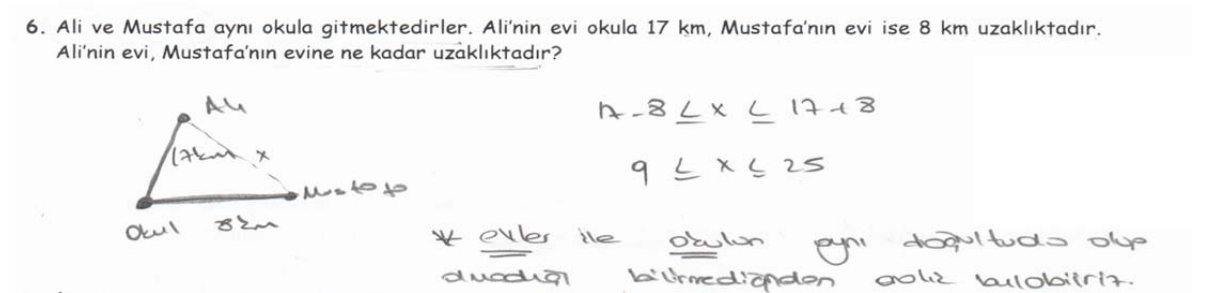 6. Ali ve Mustafa aynı okula gitmektedirler. Ali'nin evi okula 17 km, Mustafa'nın evi ise 8 km uzaklıktadır.
Ali'nin evi, Mustafa'nın evine ne kadar uzaklıktadır?
Ali
17-8 ≤ x ≤ 17+8
17km x
9 ≤ x ≤ 25
Mustafa
Okul 8km
* evler ile okulun aynı doğrultuda olup
olmadığı bilinmediğinden aralık bulabiliriz.